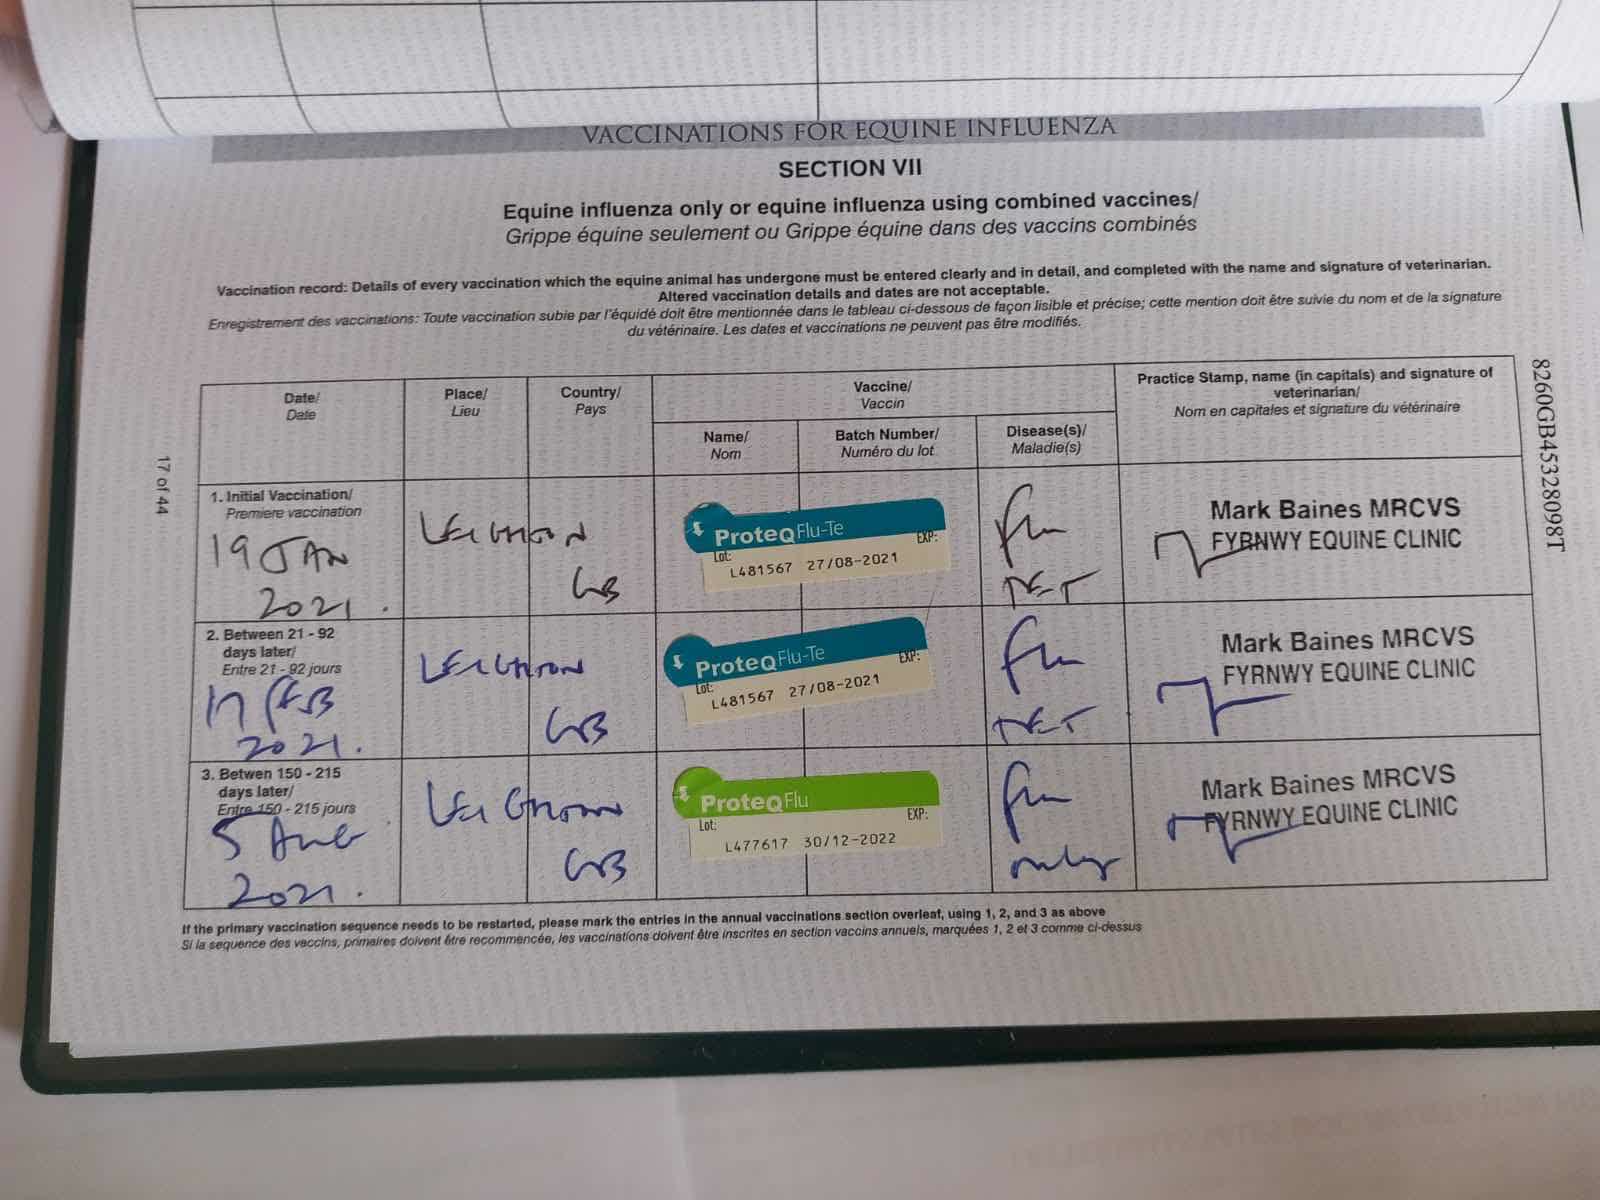 VACCINATIONS FOR EQUINE INFLUENZA
SECTION VII
Equine influenza only or equine influenza using combined vaccines/
Grippe équine seulement ou Grippe équine dans des vaccins combinés
Vaccination record: Details of every vaccination which the equine animal has undergone must be entered clearly and in detail, and completed with the name and signature of veterinarian.
Altered vaccination details and dates are not acceptable.
Enregistrement des vaccinations: Toute vaccination subie par l'équidé doit être mentionnée dans le tableau ci-dessous de façon lisible et précise; cette mention doit être suivie du nom et de la signature
du vétérinaire. Les dates et vaccinations ne peuvent pas être modifiés.
Date/
Date
Place/
Lieu
Country/
Pays
Vaccine/
Vaccin
Name/
Nom
Batch Number/
Numéro du lot
Disease(s)/
Maladie(s)
Practice Stamp, name (in capitals) and signature of
veterinarian/
Nom en capitales et signature du vétérinaire
1. Initial Vaccination/
Premiere vaccination
19 JAN
2021.
LEIGHTON
GB
ProteqFlu-Te
Lot: EXP:
L481567 27/08-2021
Flu
TET
Mark Baines MRCVS
FYRNWY EQUINE CLINIC
2. Between 21 - 92
days later/
Entre 21 - 92 jours
17 FEB
2021.
LEIGHTON
GB
ProteqFlu-Te
Lot: EXP:
L481567 27/08-2021
Flu
TET
Mark Baines MRCVS
FYRNWY EQUINE CLINIC
3. Betwen 150 - 215
days later/
Entre 150 - 215 jours
5 AUG
2021.
LEIGHTON
GB
ProteqFlu
Lot: EXP:
L477617 30/12-2022
Flu
only
Mark Baines MRCVS
FYRNWY EQUINE CLINIC
If the primary vaccination sequence needs to be restarted, please mark the entries in the annual vaccinations section overleaf, using 1, 2, and 3 as above
Si la sequence des vaccins, primaires doivent être recommencée, les vaccinations doivent être inscrites en section vaccins annuels, marquées 1, 2 et 3 comme ci-dessus
17 of 44
8260GB45328098T